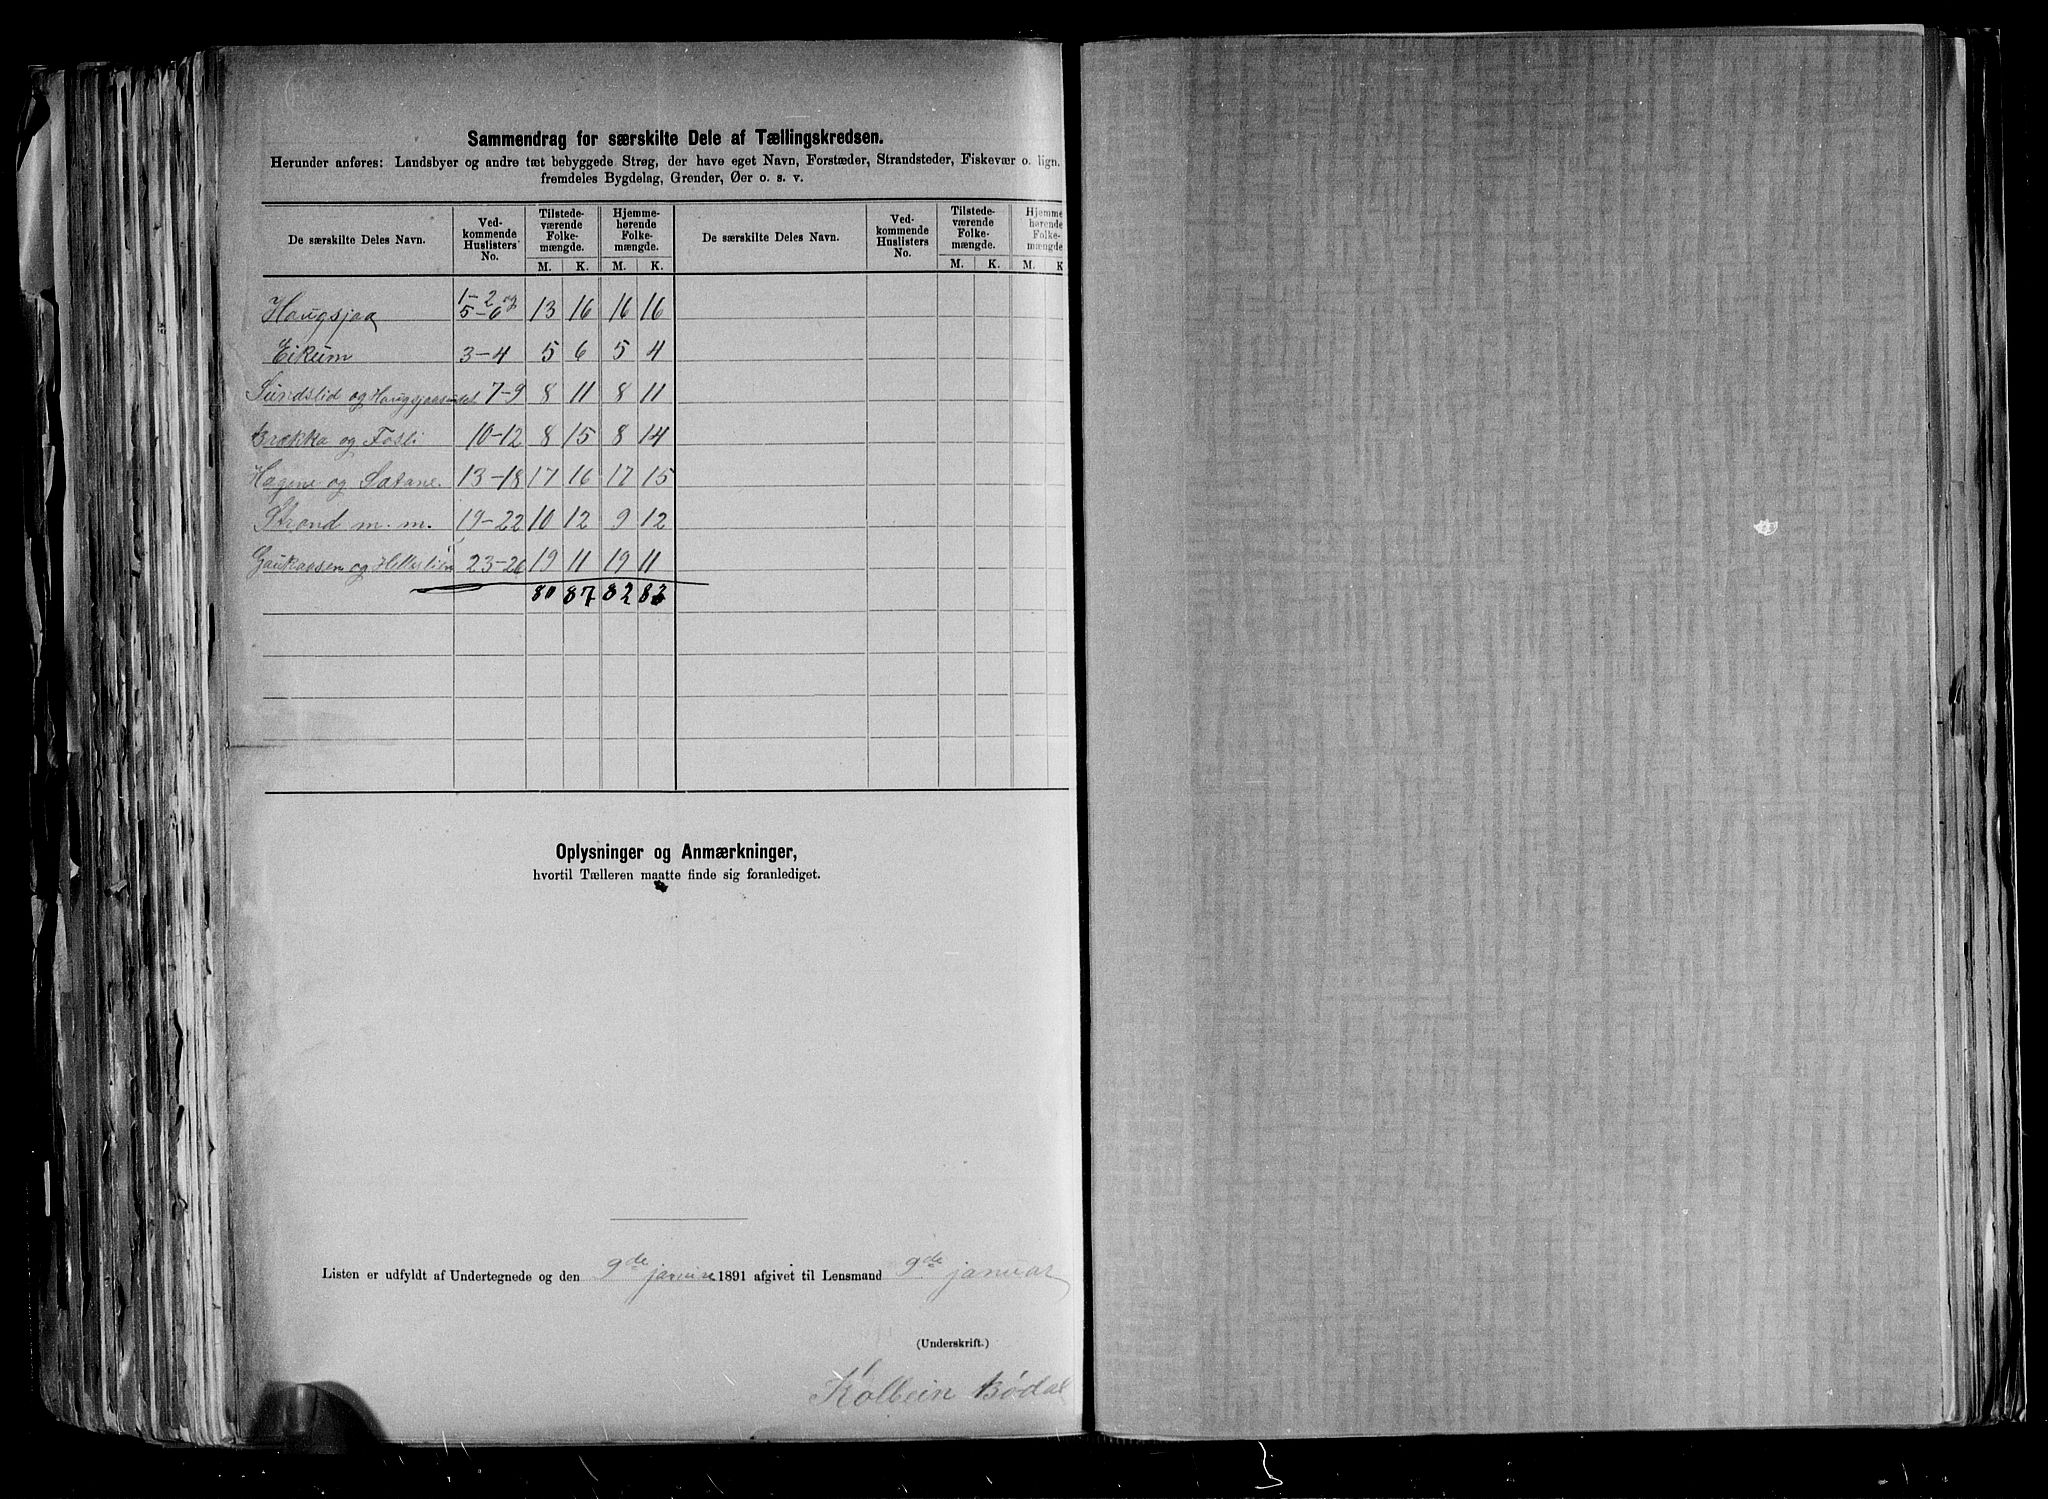 Sammendrag for særskilte Dele af Tællingskredsen.
Herunder anføres: Landsbyer og andre tæt bebyggede Strøg, der have eget Navn, Forstæder, Strandsteder, Fiskevær o. lign.
fremdeles Bygdelag, Grender, Øer o. s. v.
De særskilte Deles Navn. Ved-kommende Huslisters No. Tilstede-værende Folke-mængde. Hjemme-hørende Folke-mængde. De særskilte Deles Navn. Ved-kommende Huslisters No. Tilstede-værende Folke-mængde. Hjemme-hørende Folke-mængde
M. K. M. K. M. K. M. K
Haugsjaa 1-2 og 5-6 13 16 16 16
Eikum 3-4 5 6 5 4
Sundslid og Haugsjaasundet 7-9 8 11 8 11
Brækka og Fosli 10-12 8 15 8 14
Hagene og Sætane. 13-18 17 16 17 15
Strond m. m. 19-22 10 12 9 12
Gaukaasen og 23-26 19 11 19 11
80 87 82 83
Oplysninger og Anmærkninger,
hvortil Tælleren maatte finde sig foranlediget.
Listen er udfyldt af Undertegnede og den 9de 1891 afgivet til Lensmand 9de januar
(Underskrift.)
Kolbein Bödal